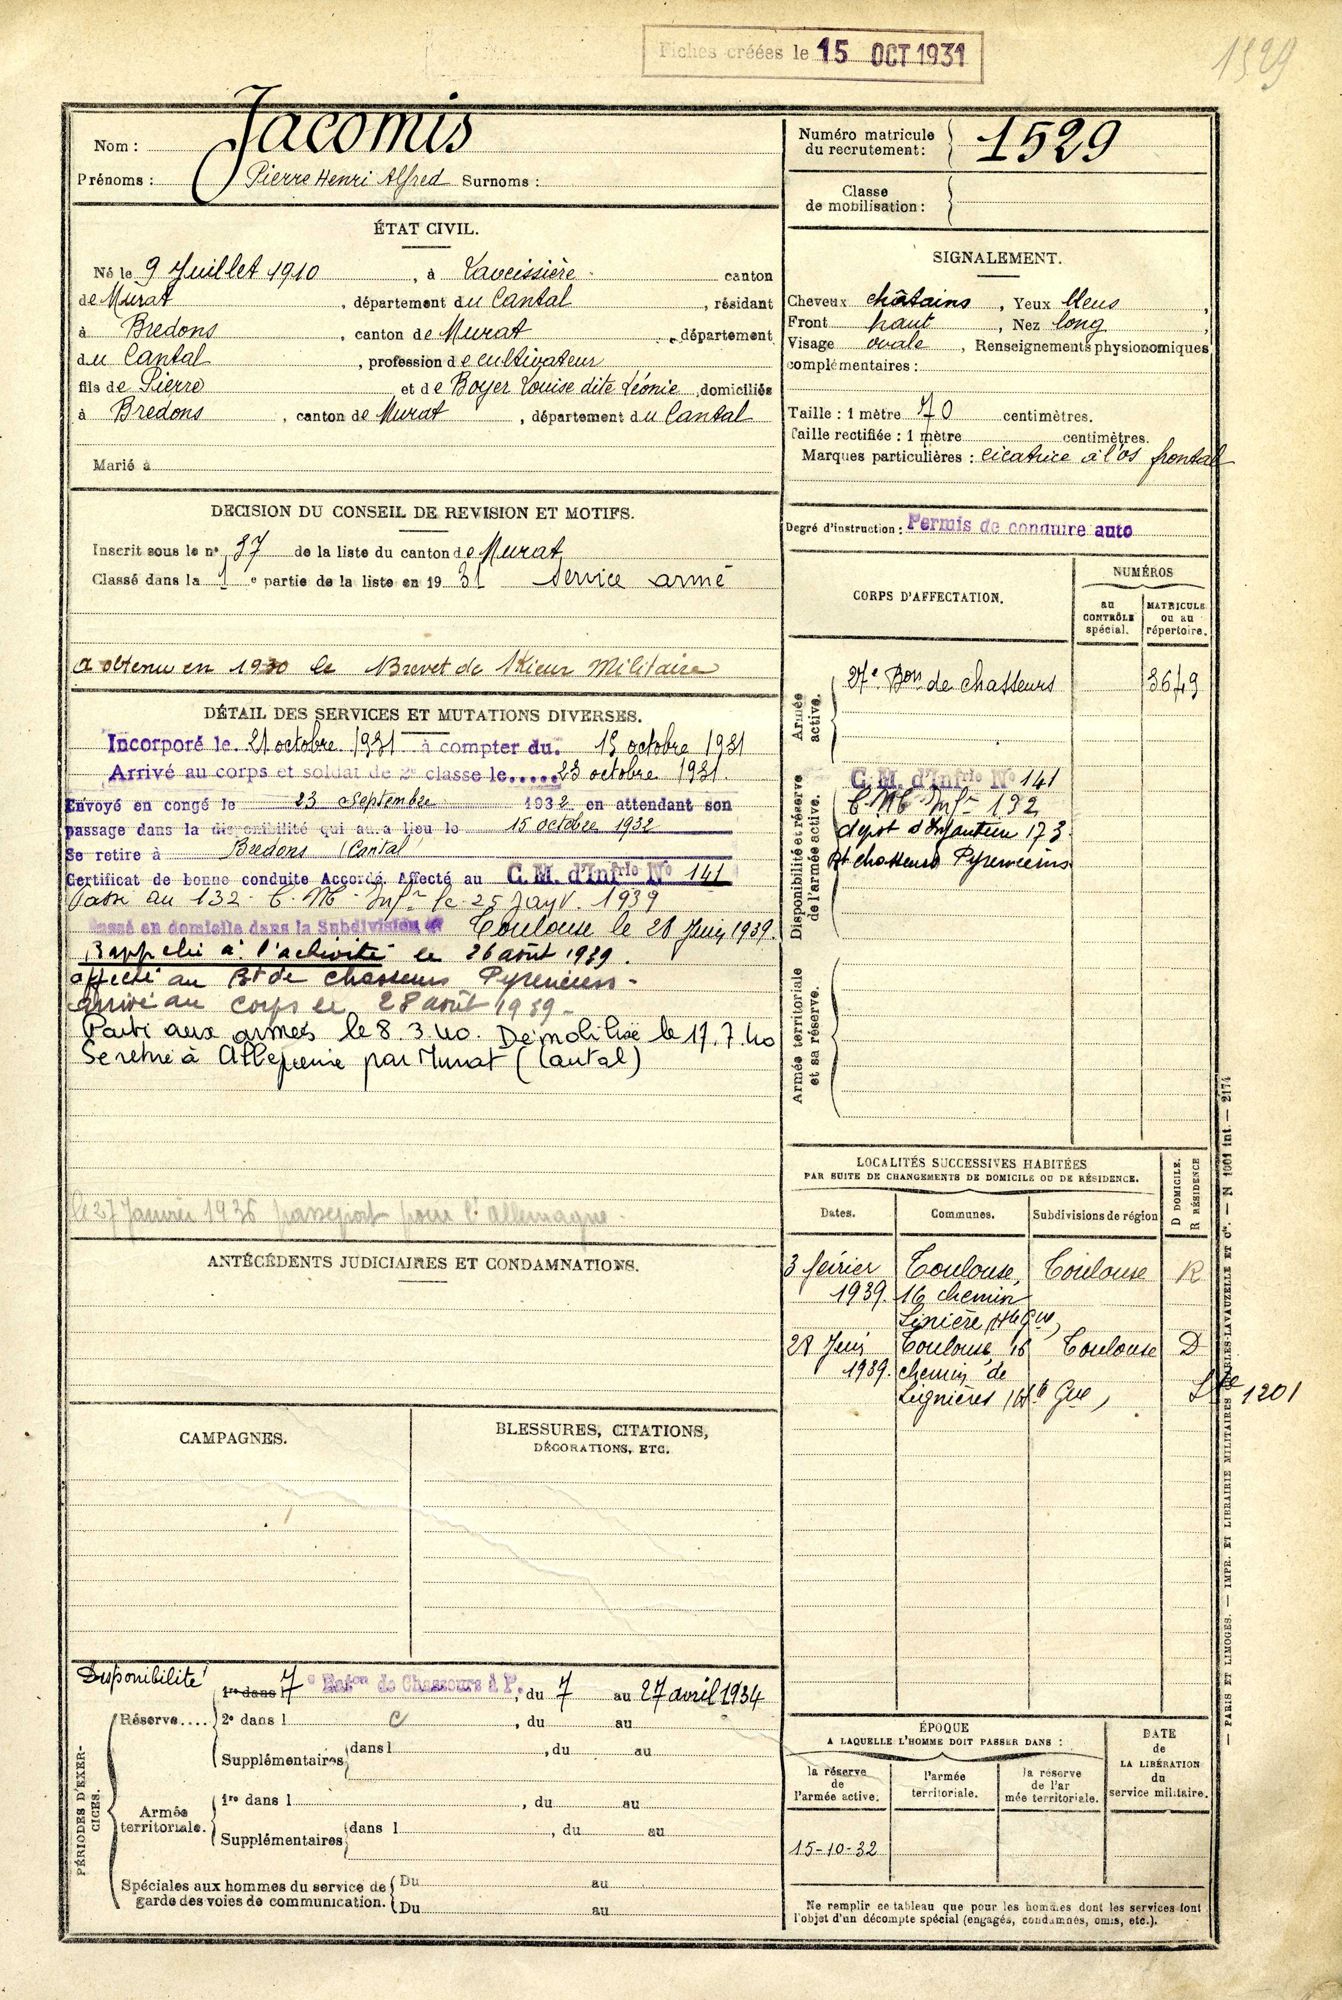 Fiches créées le 15 OCT 1931
1529
Nom : Jacomis
Prénoms : Pierre Henri Alfred Surnoms :
Numéro matricule
du recrutement : 1529
Classe
de mobilisation :
ÉTAT CIVIL.
Né le 9 Juillet 1910, à Laveissière canton
de Murat, département du Cantal, résidant
à Bredons, canton de Murat, département
du Cantal, profession de cultivateur
fils de Pierre et de Boyer Louise dite Léonie, domiciliés
à Bredons, canton de Murat, département du Cantal
Marié à
SIGNALEMENT.
Cheveux châtains, Yeux bleus,
Front haut, Nez long,
Visage ovale, Renseignements physionomiques
complémentaires :
Taille : 1 mètre 70 centimètres.
Taille rectifiée : 1 mètre centimètres.
Marques particulières : cicatrice à l'os frontal
Degré d'instruction : Permis de conduire auto
DECISION DU CONSEIL DE REVISION ET MOTIFS.
Inscrit sous le n° 37 de la liste du canton de Murat
Classé dans la 1e partie de la liste en 1931 Service armé
a obtenu en 1930 le Brevet de Skieur Militaire
DÉTAIL DES SERVICES ET MUTATIONS DIVERSES.
Incorporé le 21 octobre 1931 à compter du 15 octobre 1931
Arrivé au corps et soldat de 2e classe le..... 23 octobre 1931.
Envoyé en congé le 23 Septembre 1932 en attendant son
passage dans la disponibilité qui aura lieu le 15 octobre 1932
Se retire à Bredons (Cantal)
Certificat de bonne conduite Accordé. Affecté au C.M. d'Infrie No 141
Passé au 132 C. M. Infie le 25 Janv. 1939
Passé en domicile dans la Subdivision de Toulouse le 28 Juin 1939.
Rappelé à l'activité le 26 août 1939.
affecté au Bt de chasseurs Pyrénéens -
arrivé au corps le 28 août 1939 -
Parti aux armées le 8.3.40. Démobilisé le 17.7.40
Se retire à Albepierre par Murat (Cantal)
le 27 Janvier 1936 passeport pour l'allemagne.
CORPS D'AFFECTATION.
NUMÉROS
au
CONTRÔLE
spécial.
MATRICULE
ou au
répertoire.
Armée
active.
27e Bon de chasseurs 3649
Disponibilité et réserve
de l'armée active.
C.M. d'Infrie No 141
C M Infie 132
dépot d'Infanterie 173
Bt chasseurs Pyreneens
Armée territoriale
et sa réserve.
LOCALITÉS SUCCESSIVES HABITÉES
PAR SUITE DE CHANGEMENTS DE DOMICILE OU DE RÉSIDENCE.
Dates.
Communes.
Subdivisions de région
D DOMICILE.
R RÉSIDENCE
3 février Toulouse, Toulouse R
1939. 16 chemin
Linière Hte Gne,
28 Juin Toulouse 16 Toulouse D
1939. chemin de
Lignières Hte Gne,
1201
ANTÉCÉDENTS JUDICIAIRES ET CONDAMNATIONS.
CAMPAGNES.
BLESSURES, CITATIONS,
DÉCORATIONS, ETC.
PÉRIODES D'EXER-
CICES.
Disponibilité
1re dans 7e Baton de Chasseurs à P., du 7 au 27 avril 1934
Réserve.... 2e dans l, du au
Supplémentaires dans l, du au
Armée
territoriale.
1re dans l, du au
Supplémentaires dans l, du au
Spéciales aux hommes du service de
garde des voies de communication.
Du au
Du au
ÉPOQUE
A LAQUELLE L'HOMME DOIT PASSER DANS :
la réserve
de
l'armée active.
l'armée
territoriale.
la réserve
de l'ar
mée territoriale.
DATE
de
LA LIBÉRATION
du
service militaire.
15-10-32
Ne remplir ce tableau que pour les hommes dont les services font
l'objet d'un décompte spécial (engagés, condamnés, omis, etc.).
— PARIS ET LIMOGES. — IMPR. ET LIBRAIRIE MILITAIRES CHARLES-LAVAUZELLE ET Cie. — N 1001 int. — 2174